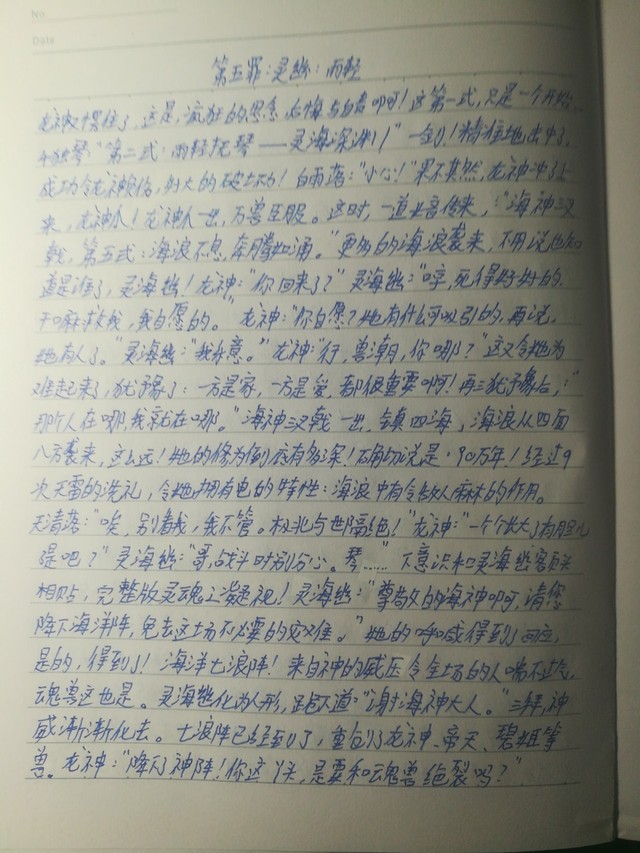 No.
Date
第五罪：灵幽：雨轻
龙神又愣住了，这是，疯狂的思念，后悔与自责啊！这第一式，只是一个开始。
"第二式：雨轻把琴——灵海深渊！"一剑！精准地击中了，
成功令龙神受伤，好大的破坏力！白雨落："小心！"果不其然，龙神冲了上
来，龙神爪！龙神爪一出，万兽臣服。这时，一道声音传来，："海神三叉
戟，第五式：海浪不息，奔腾如涌。"更多的海浪袭来，不用说也知
道是谁了，灵海幽！龙神："你回来了？"灵海幽："哼，死得好好的，
干嘛救我，我自愿的。"龙神："你自愿？她有什么可吸引的，再说，
她有人了。"灵海幽："我乐意。"龙神："行，兽潮，你哪？"这又令她为
难起来了，犹豫了：一方是家，一方是爱，都很重要啊！再三犹豫后，："
那个人在哪，我就在哪。"海神三叉戟一出，镇四海，海浪从四面
八方袭来，这么远！她的修为到底有多深！确切说是·90万年！经过9
次天雷的洗礼，令她拥有电的特性：海浪中有令敌人麻林的作用。
天清落："唉，别看我，我不管。极北与世隔绝！"龙神："一个个长大了有胆儿
是吧？"灵海幽："哥，战斗时别分心。琴……"下意识和灵海幽额头
相贴，完整版灵魂之凝视！灵海幽："尊敬的海神啊，请您
降下海洋阵，免去这场不必要的灾难。"她的呼喊得到了回应，
是的，得到了！海洋七浪阵！来自神的威压令全场的人喘不过气，
魂兽这也是。灵海幽化为人形，跪下道："谢海神大人。"三拜，神
威渐渐化去。七浪阵已经到了，重创了龙神、帝天、碧姐等
兽。龙神："降下了神阵！你这丫头，是要和魂兽绝裂吗？"